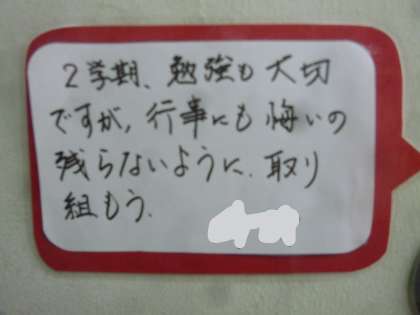 2学期、勉強も大切
ですが、行事にも悔いの
残らないように、取り
組もう.